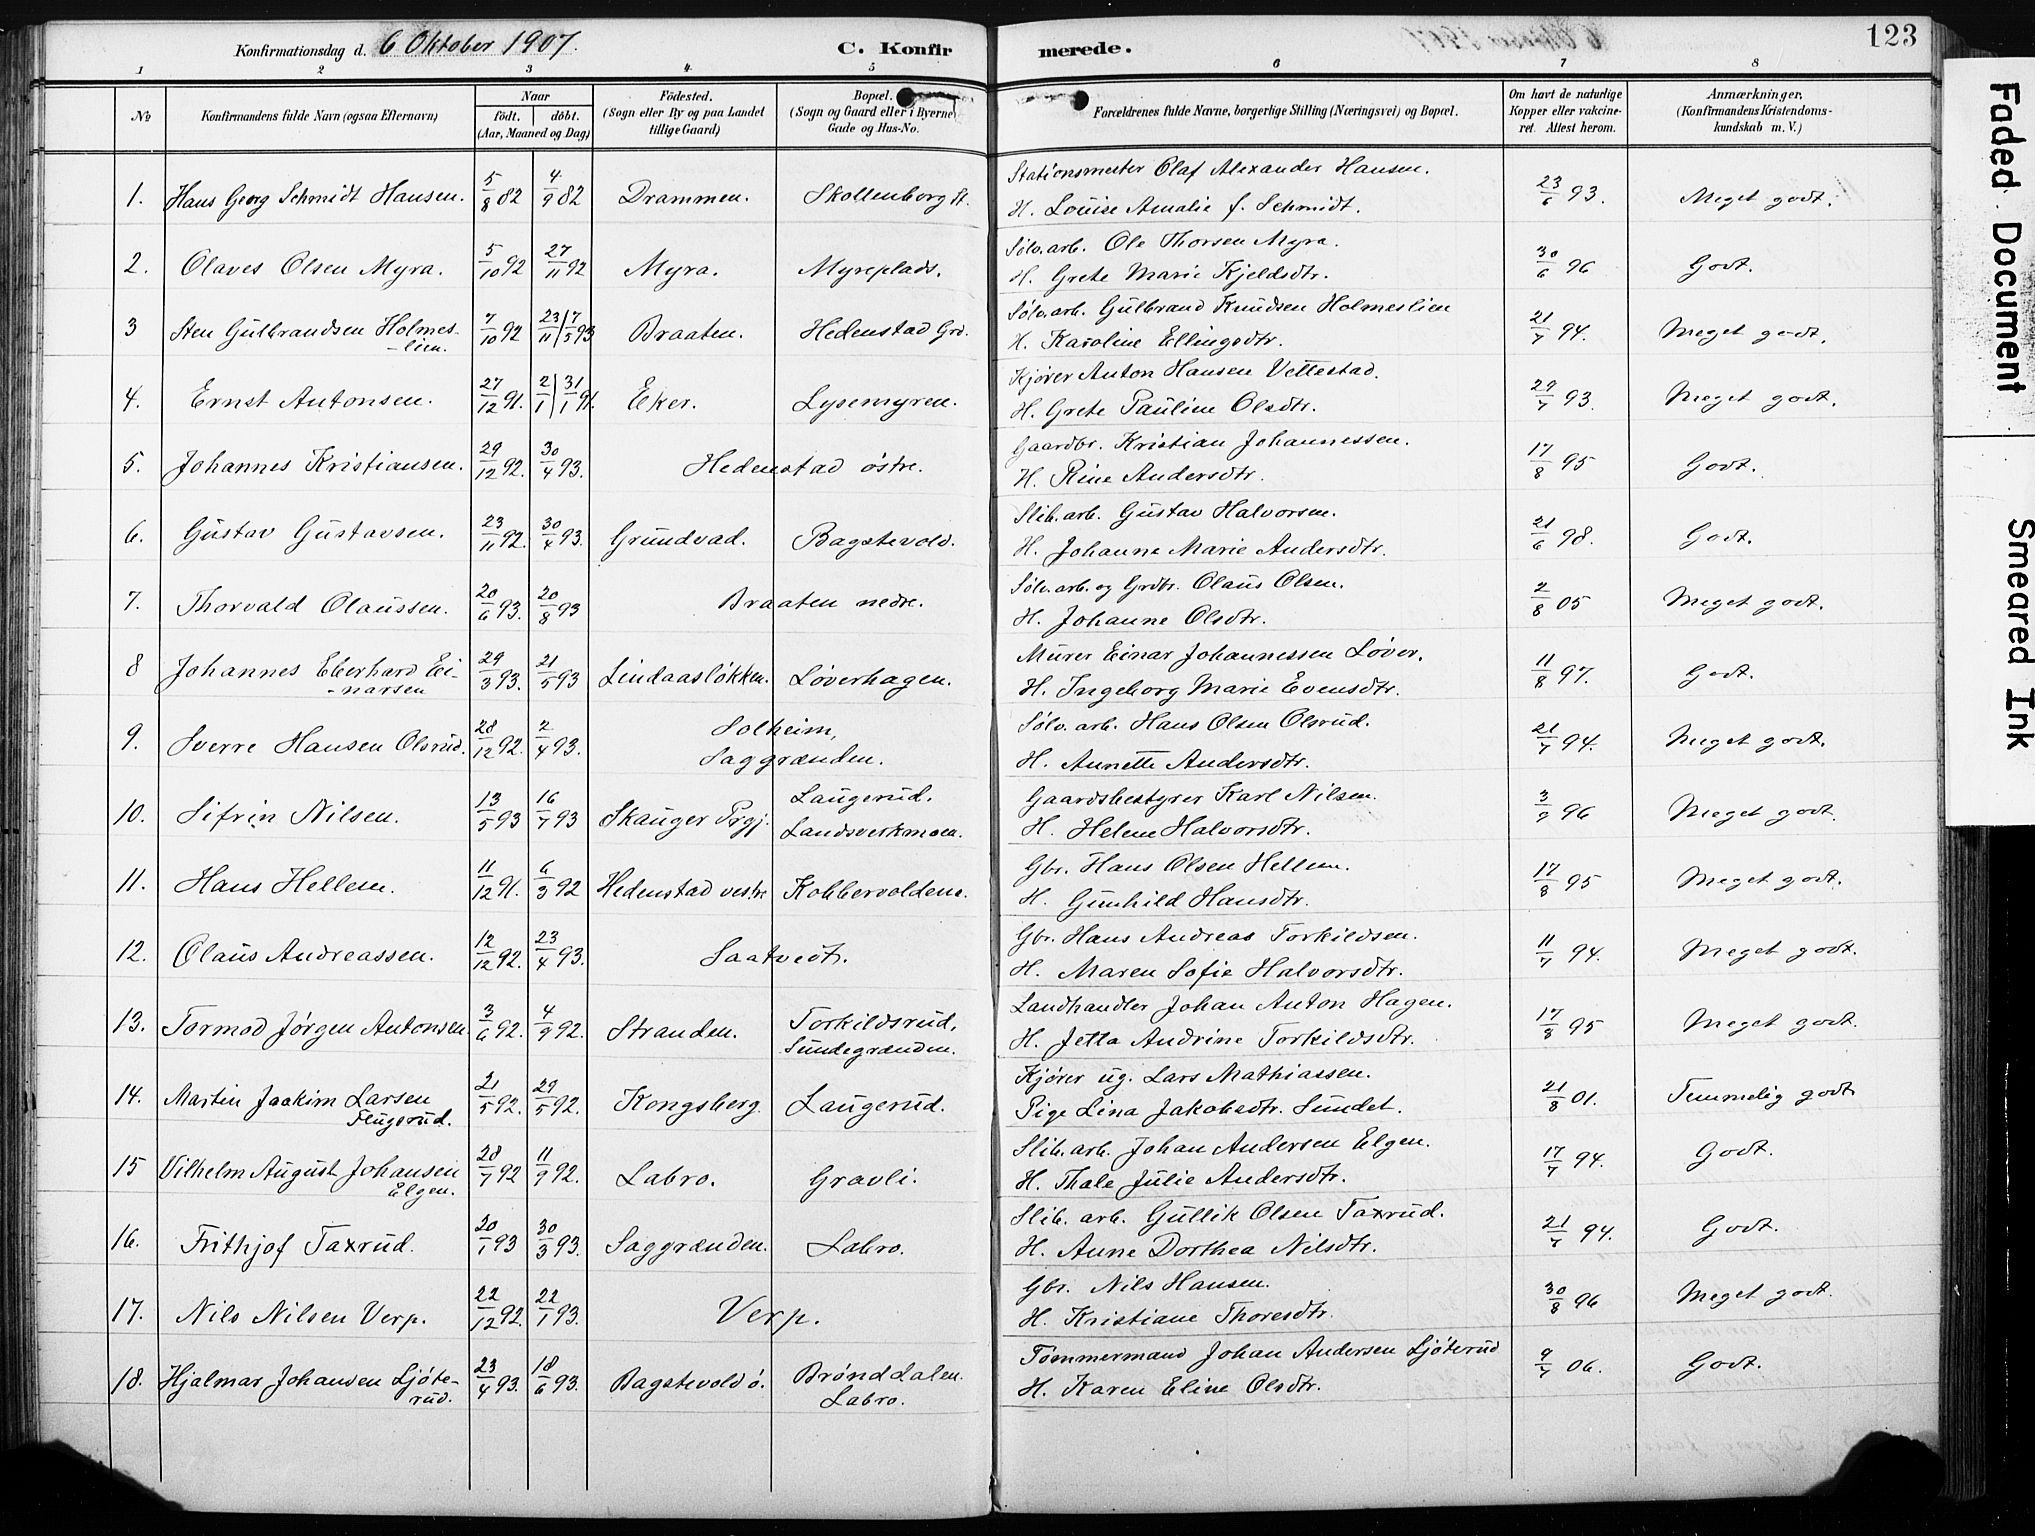 Konfirmationsdag d. 6 Oktober 1907. C. Konfirmerede. 123
1 2 3 4 5 6 7 8
No Konfirmandens fulde Navn (ogsaa Efternavn) Naar født. døbt. (Aar, Maaned og Dag) Födested. (Sogn eller By og paa Landet tillige Gaard) Bopæl. (Sogn og Gaard eller i Byerne Gade og Hus-No. Forældrenes fulde Navne, borgerlige Stilling (Næringsvei) og Bopæl. Om havt de naturlige Kopper eller vakcineret. Attest herom. Anmærkninger, (Konfirmandens Kristendomskundskab m. V.)
1. Hans Georg Schmidt Hansen. 5/8 82 4/9 82 Drammen. Skollenborg St. Stationsmester Olaf Alexander Hansen. H. Louise Amalie f. Schmidt. 23/6 93. Meget godt.
2. Olaves Olsen Myra. 5/10 92 27/11 92 Myra. Myreplads. Sølv.arb. Ole Thorsen Myra. H. Grete Marie Kjeldsdtr. 30/6 96 Godt.
3 Sten Gulbrandsen Holmes-lien. 7/10 92 23/11 | 7/5 93 Braaten. Hedenstad Grd. Sølv.arb. Gulbrand Knudsen Holmeslien H. Karoline Ellingsdtr. 21/7 94. Meget godt.
4. Ernst Antonsen. 27/12 91. 2/1 | 31/1 91. Eker. Lysemyren. Kjører Anton Hansen Vettestad. H. Grete Pauline Olsdtr. 29/7 93. Meget godt.
5. Johannes Kristiansen. 29/12 92. 30/4 93. Hedenstad østre. Gaardbr. Kristian Johannessen. H. Rine Andersdtr. 17/8 95 Godt.
6. Gustav Gustavsen. 23/11 92. 30/4 93. Grundvad. Bagstevold. Slib.arb. Gustav Halvorsen. H. Johanne Marie Andersdtr. 21/6 98. Godt.
7. Thorvald Olaussen. 20/6 93. 20/8 93 Braaten nedre. Sølv.arb. og Grdbr. Olaus Olsen. H. Johanne Olsdtr. 2/8 05 Meget godt.
8 Johannes Eberhard Ei-narsen 29/3 93. 21/5 93 Lindaasløkken. Løverhagen. Murer Einar Johannessen Løver. H. Ingeborg Marie Evensdtr. 11/8 97. Godt.
9. Sverre Hansen Olsrud. 28/12 92. 2/4 93. Solheim, Saggrænden. Sølv. arb. Hans Olsen Olsrud. H. Annette Andersdtr. 21/7 94. Meget godt.
10. Sifrin Nilsen. 13/5 93 16/7 93 Skauger Prgj. Laugerud. Landsverkmoen. Gaardsbestyrer Karl Nilsen. H. Helene Halvorsdtr. 3/9 96 Meget godt.
11. Hans Hellem. 11/12 91. 6/3 92 Hedenstad vestre Kobbervoldene. Gbr. Hans Olsen Hellem. H. Gunhild Hansdtr. 17/8 95 Meget godt.
12. Olaus Andreassen. 12/12 92. 23/4 93. Saatvedt. Gbr. Hans Andreas Torkildsen. H. Maren Sofie Halvorsdtr. 11/7 94. Meget godt.
13. Tormod Jørgen Antonsen 3/6 92. 4/9 92. Stranden. Torkildsrud, Sundegrænden. Landhandler Johan Anton Hagen. H. Jetta Andrine Torkildsdtr. 17/8 95 Meget godt.
14. Martin Joakim Larsen Flugsrud. 21/5 92. 29/5 92. Kongsberg. Laugerud. Kjører ug. Lars Mathiassen. Pige Lina Jakobsdtr. Sundet. 21/8 01. Temmelig godt
15 Vilhelm August Johansen Elgen. 28/7 92 11/9 92. Labro. Gravli. Slib.arb. Johan Andersen Elgen. H. Thale Julie Andersdtr. 17/7 94. Godt.
16. Frithjof Taxrud. 20/1 93 30/3 93. Saggrænden. Labro. Slib. arb. Gullik Olsen Taxrud. H. Anne Dorthea Nilsdtr. 21/7 94. Godt.
17. Nils Nilsen Verp. 22/12 92. 22/1 93. Verp. Gbr. Nils Hansen. H. Kristiane Thoresdtr. 30/8 96 Meget godt.
18. Hjalmar Johansen Ljøte-rud. 23/4 93. 18/6 93. Bagstevold ø. Brønddalen. Labro. Tømmermand Johan Andersen Ljøterud H. Karen Eline Olsdtr. 9/7 06. Godt.
Faded Document
Smeared Ink